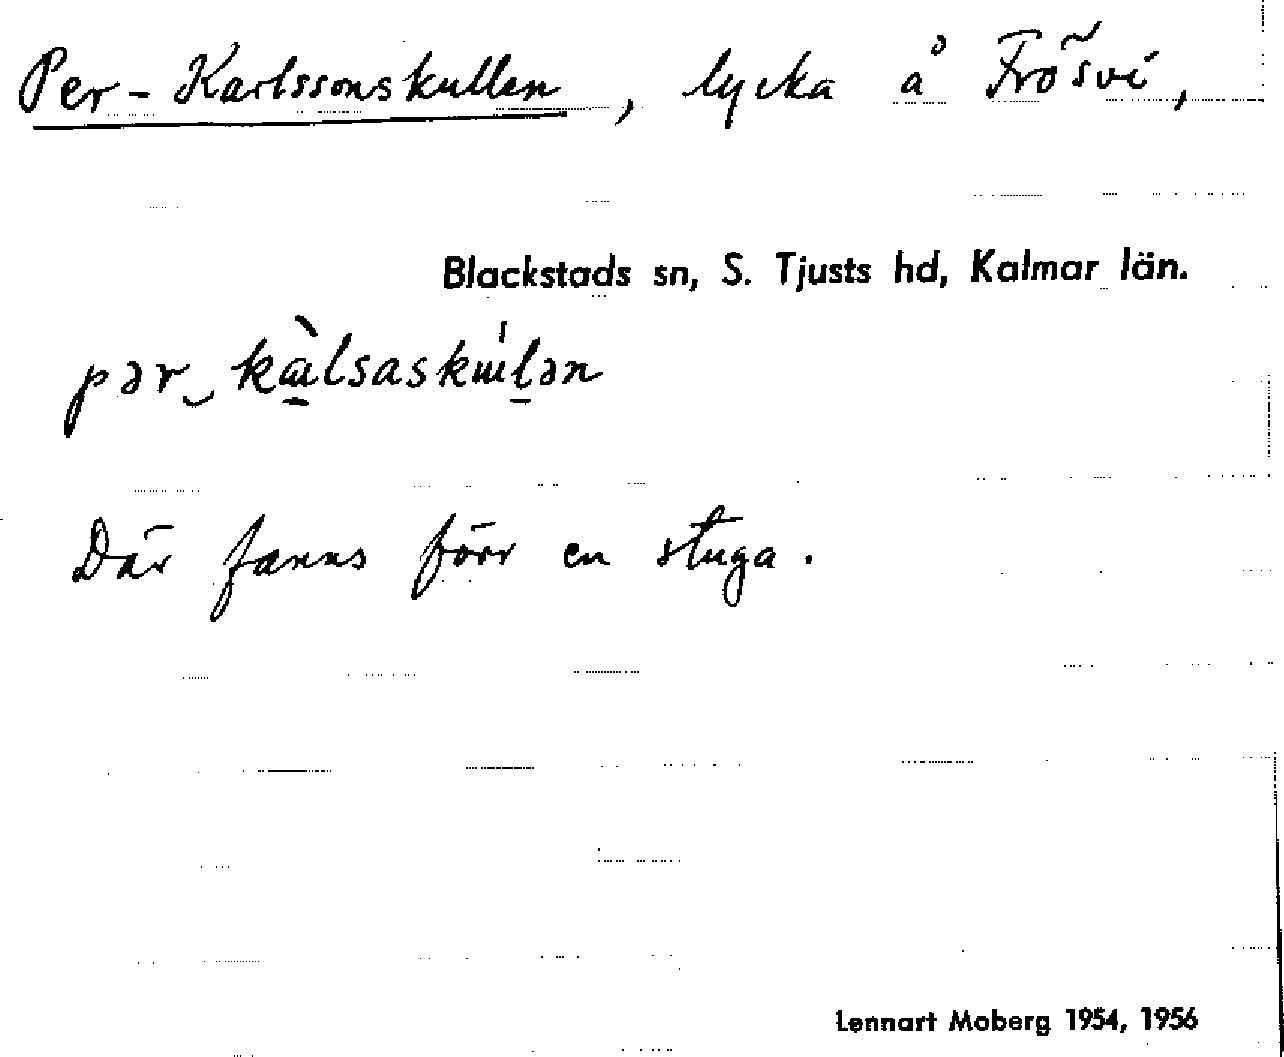 Per-Karlssonskullen, lycka å Frösvi,
Blackstads sn, S. Tjusts hd, Kalmar län.
Där fanns förr en stuga.
Lennart Moberg 1954, 1956